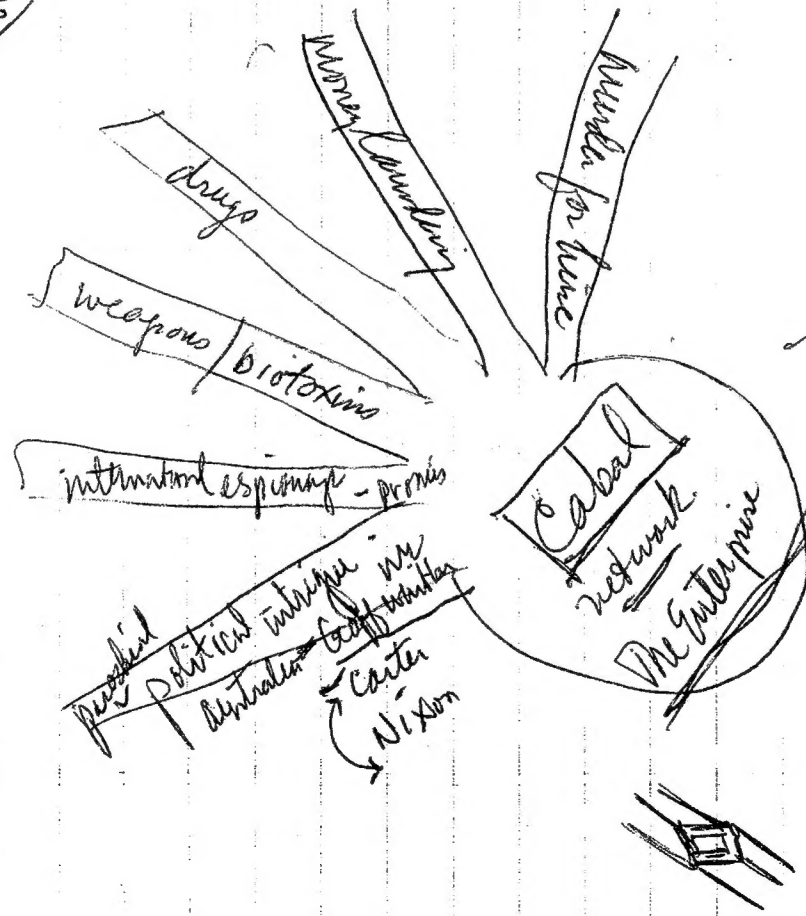 money laundering
murder for hire
drugs
weapons/biotoxins
international espionage - promis
political intrigue
australia Gough Whitlam
Carter
Nixon
Cabal
network
The Enterprise